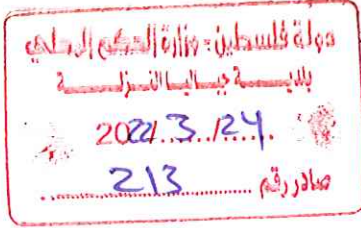 دولة فلسطين - وزارة الحكم المحلي
بلدية جباليا النزلة
2022/3/24
صادر رقم 213